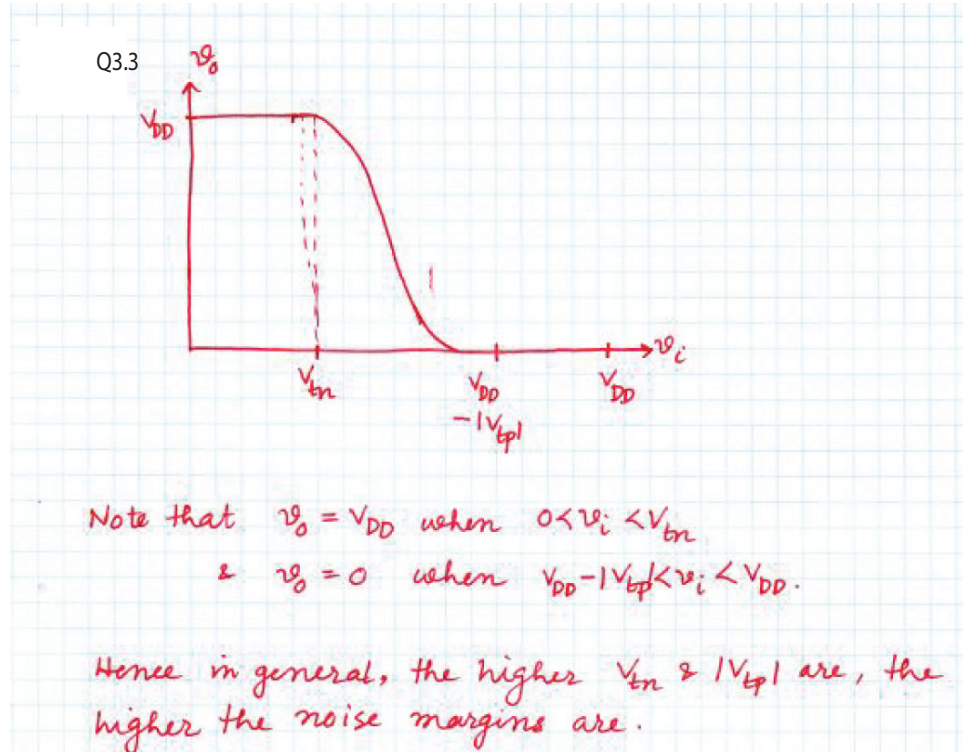 Q3.3
v₀
V_DD
v_i
V_tn
V_DD
-|V_tp|
V_DD
Note that v₀ = V_DD when 0 < v_i < V_tn
& v₀ = 0 when V_DD - |V_tp| < v_i < V_DD.
Hence in general, the higher V_tn & |V_tp| are, the
higher the noise margins are.